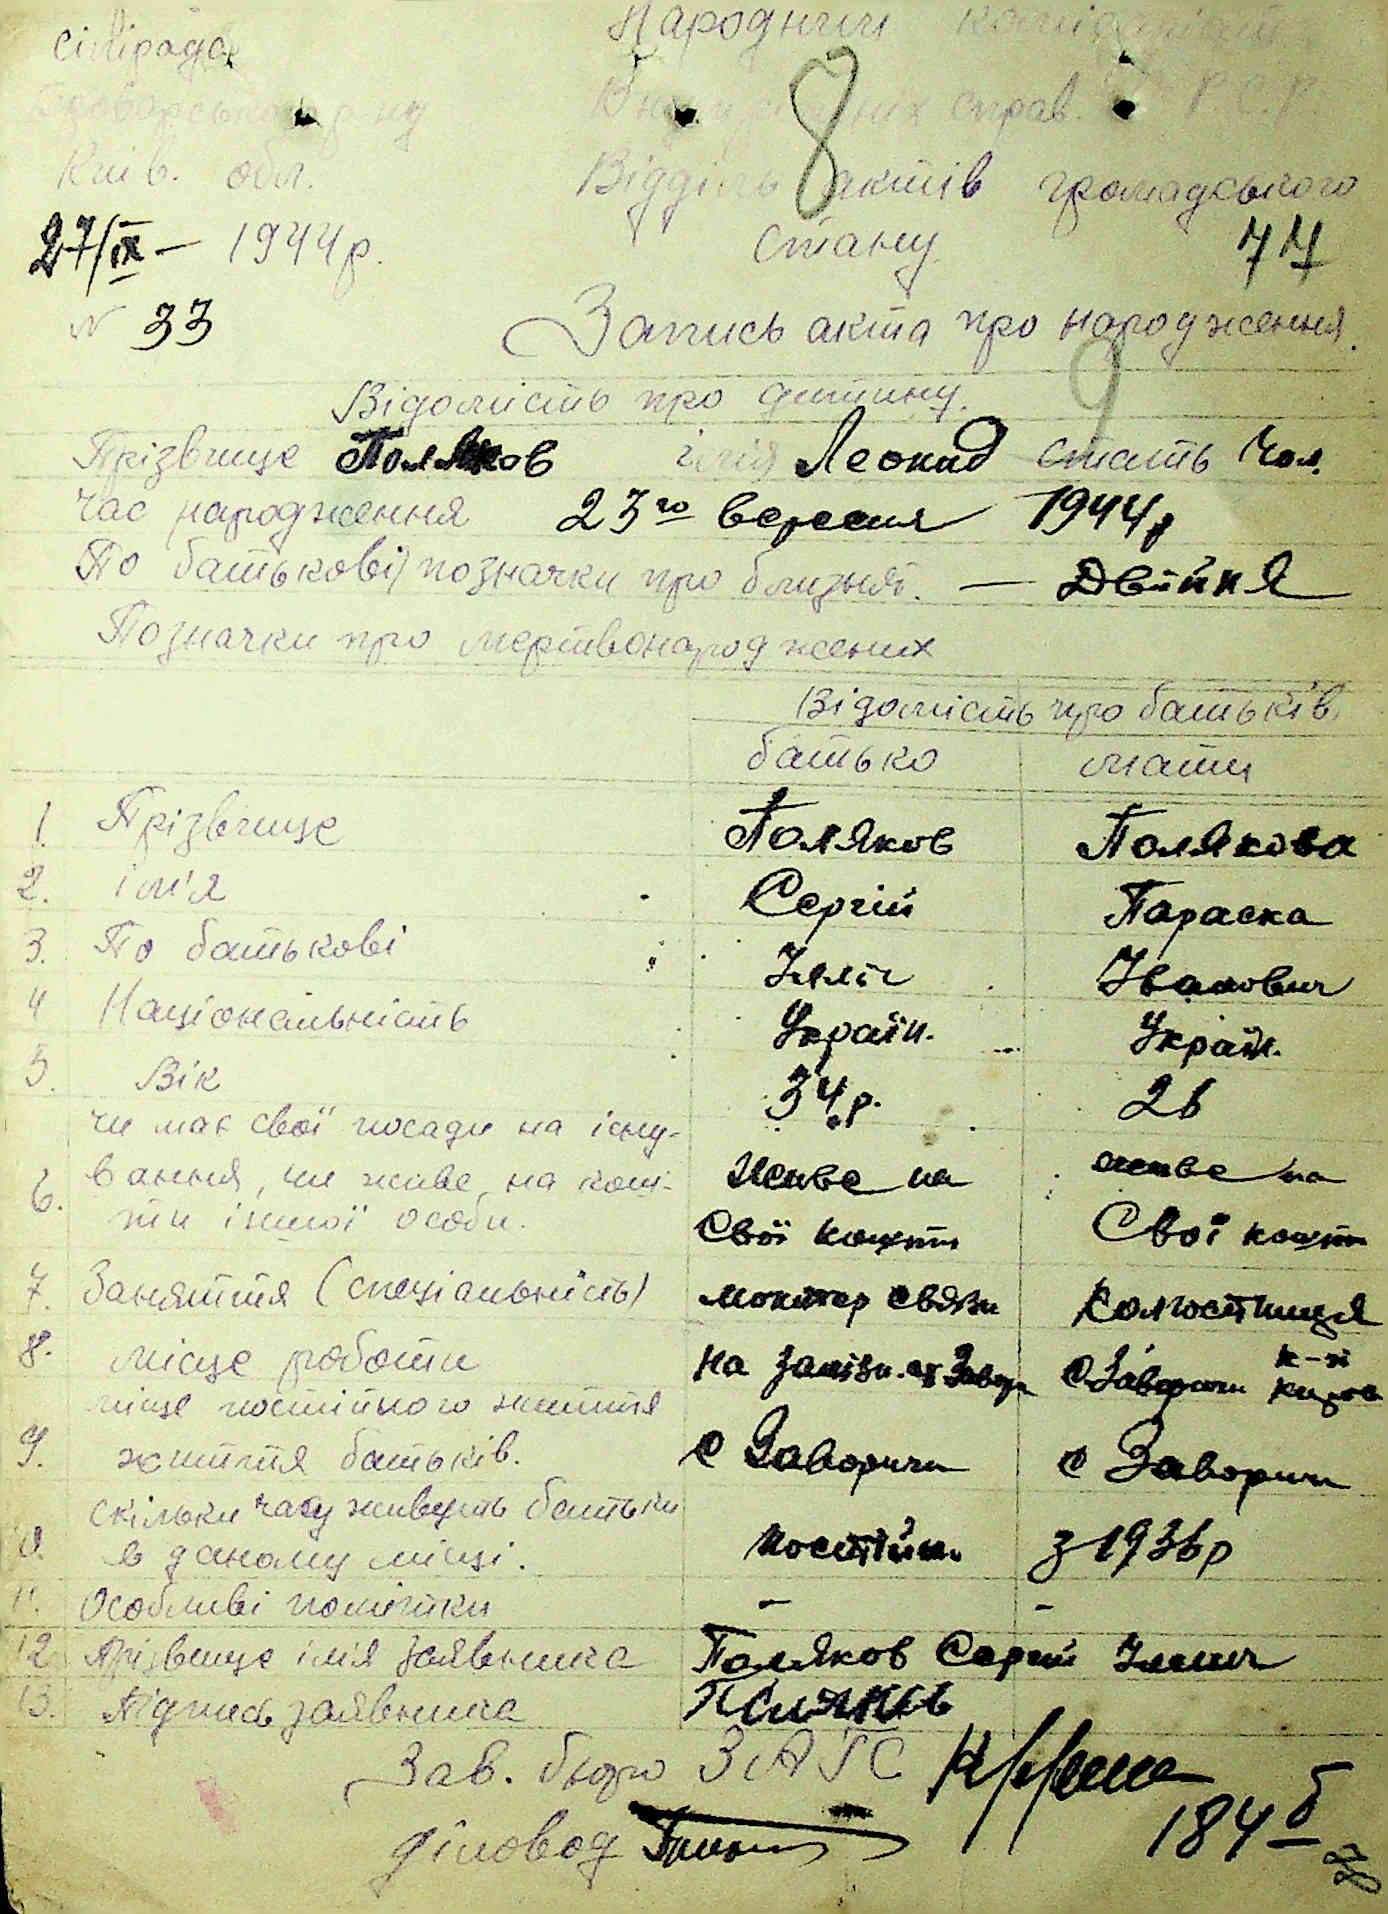 сілірада
Народний комісаріат
Броварського р-ну
Внутрішніх справ. У.Р.С.Р.
8
Київ. обл.
Відділь актів громадського
27/ІХ — 1944р.
стану
77
№ 33
Запись акта про народження.
9
Відомість про дитину.
Прізвище Поляков імія Леонид стать Чол.
Час народження 23го вересня 1944р
По батькові, позначки про близнят. — Двійня
Позначки про мертвонароджених
Відомість про батьків.
батько мати
1. Прізвище Поляков Полякова
2. ім'я Сергій Параска
3. По батькові Ілліч Іванович
4 Національність Україн. Україн.
5. Вік 34р. 26
чи має свої посади на існу-
6. вання, чи живе на кош- живе на живе на
ти іншої особи. свої кошти Свої кошти
7. Заняття (спеціальність) монтер связи Колгостниця
8. місце роботи на залізн. с Заворичи к-зі
місце постійного життя
9. життя батьків. с Заворичи с Заворичи
скільки часу живуть батьки
10. в даному місці. постійн. з 1936р
11. Особливі помітки - -
12 Прізвище імія заявника Поляков Сергій Ілліч
13. Підпись заявника
Зав. бюро ЗАГС
184 б
діловод